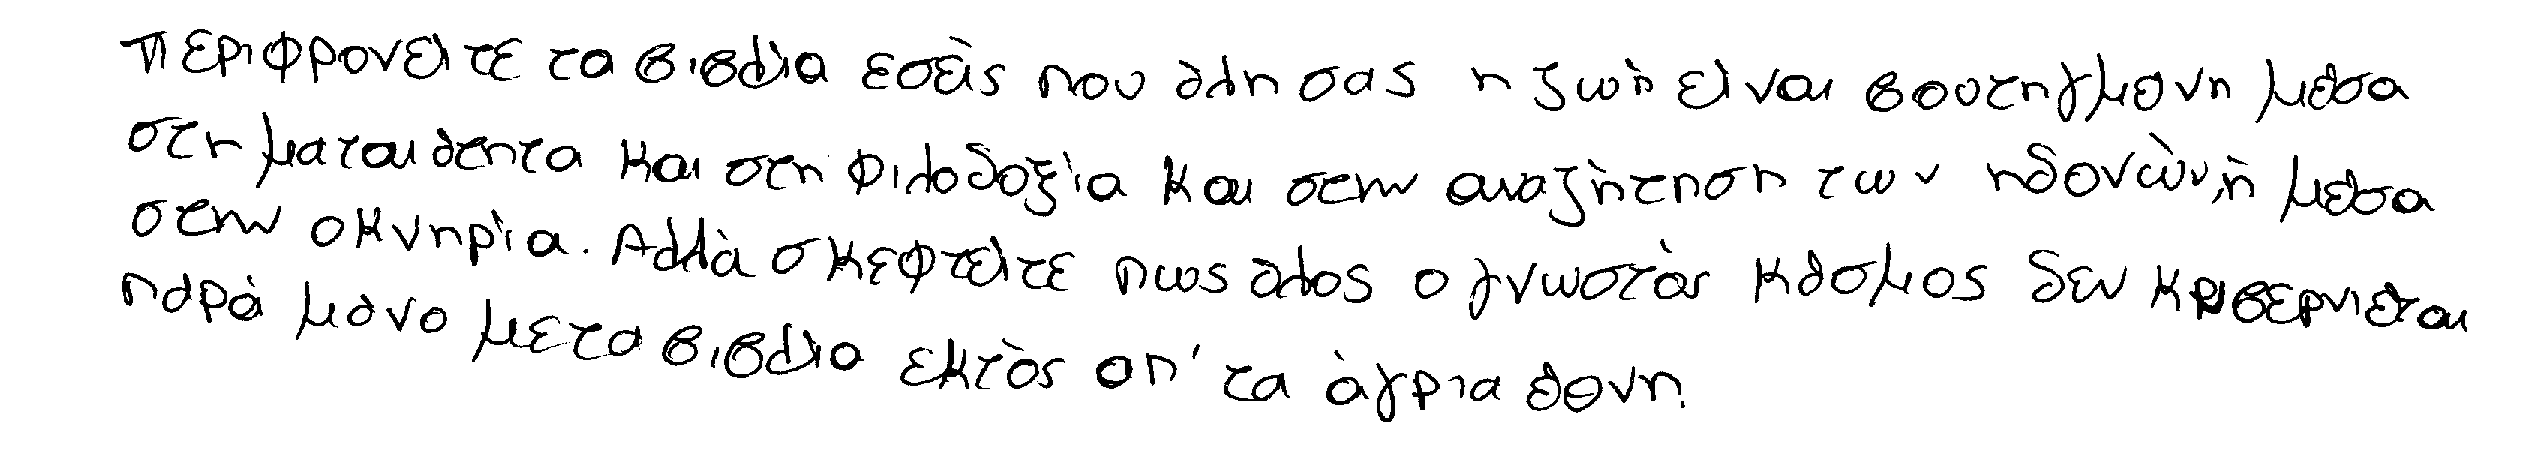 Περιφρονείτε τα βιβλία εσείς που όλη σας η ζωή είναι βουτηγμένη μέσα
στη ματαιότητα και στη φιλοδοξία και στην αναζήτηση των ηδονών, ή μέσα
στην οκνηρία. Αλλά σκεφτείτε πως όλος ο γνωστός κόσμος δεν κυβερνιέται
παρά μόνο με τα βιβλία εκτός απ' τα άγρια έθνη.